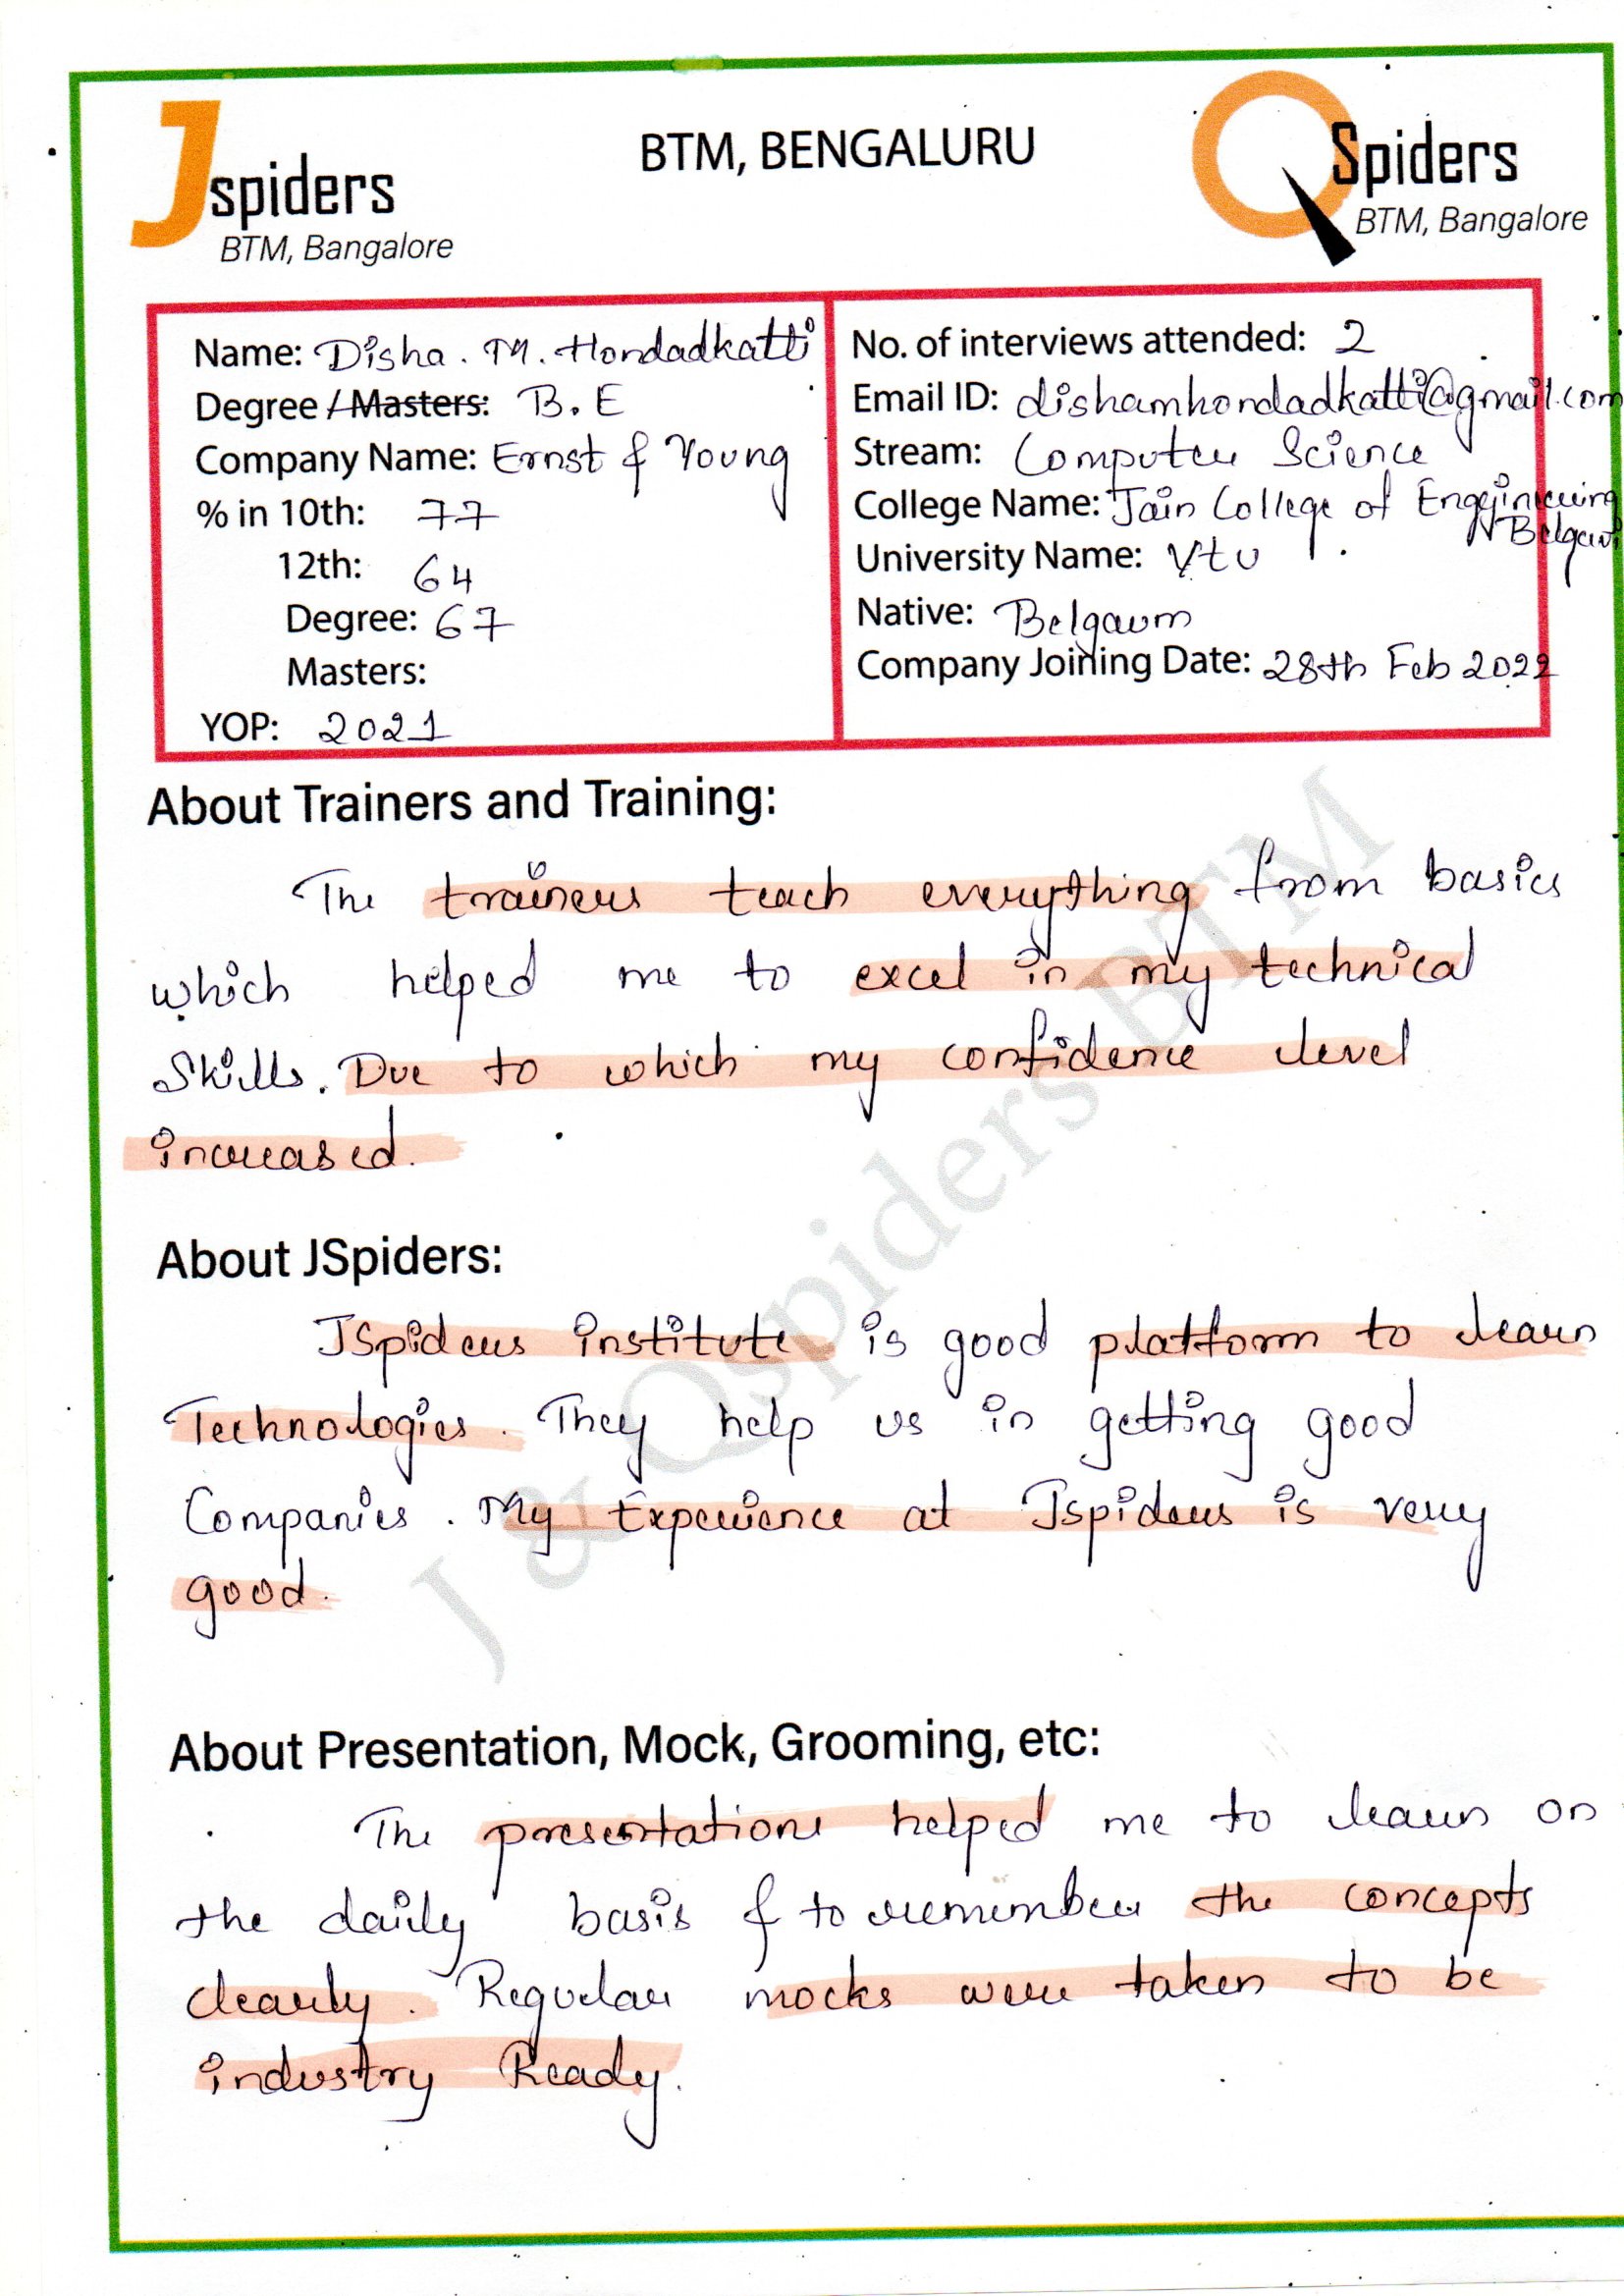 Jspiders
BTM, Bangalore
BTM, BENGALURU
QSpiders
BTM, Bangalore
Name: Disha. M. Hondadkatti
Degree / Masters: B.E
Company Name: Ernst & Young
% in 10th: 77
12th: 64
Degree: 67
Masters:
YOP: 2021
No. of interviews attended: 2
Email ID: dishamhondadkatti@gmail.com
Stream: Computer Science
College Name: Jain College of
University Name: Vtu
Native: Belgaum
Company Joining Date: 28th Feb 2022
About Trainers and Training:
The trainers teach everything from basics
which helped me to excel in my technical
Skills. Due to which my confidence level
increased.
About JSpiders:
JSpiders institute is good platform to learn
Technologies. They help us in getting good
Companies. My Experience at Jspiders is very
good.
About Presentation, Mock, Grooming, etc:
The presentations helped me to learn on
the daily basis & to remember the concepts
clearly. Regular mocks were taken to be
industry Ready.
J & Qspiders BTM